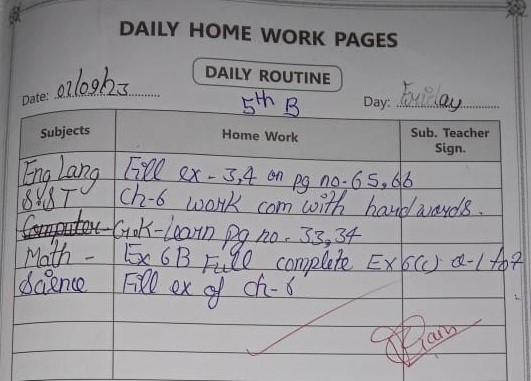 DAILY HOME WORK PAGES
DAILY ROUTINE
Date: 01/09/23 5th B Day: Friday
Subjects Home Work Sub. Teacher Sign.
Eng Lang Fill ex - 3,4 on pg no - 65, 66
S.ST Ch-6 work com with hard words.
Computer - G.K - Learn pg no. 33, 34
Math - Ex 6B Full complete Ex 6(c) Q-1 to 7
Science Fill ex of ch-6